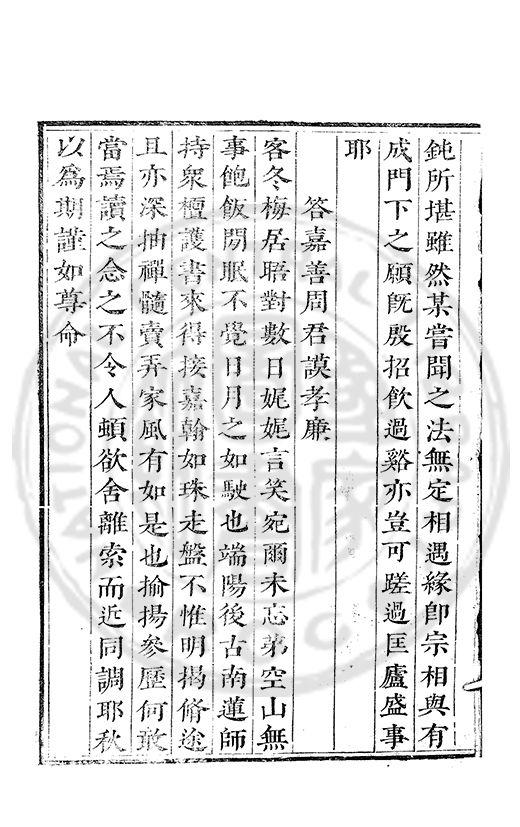 鈍所堪雖然某嘗聞之法無定相遇緣卽宗相與有
成門下之願旣殷招飲過谿亦豈可蹉過匡廬盛事
耶
答嘉善周君謨孝廉
客冬梅居晤對數日娓娓言笑宛爾未忘第空山無
事飽飯閒眠不覺日月之如駛也端陽後古南蓮師
持衆檀護書來得接嘉翰如珠走盤不惟明揭脩途
且亦深抽禪髓賣弄家風有如是也揄揚參歷何敢
當焉讀之念之不令人頓欲舍離索而近同調耶秋
以爲期謹如尊命